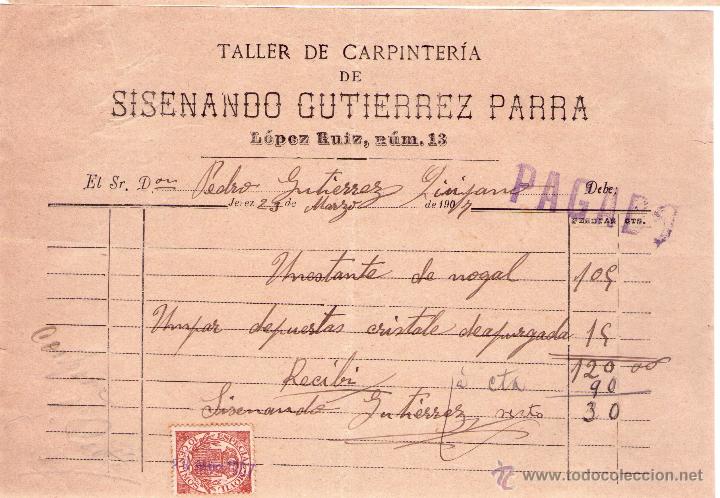 TALLER DE CARPINTERÍA
DE
SISENANDO GUTIERREZ PARRA
López Ruiz, núm. 13
El Sr. Don Pedro Gutierrez Quijano Debe
Jerez 23 de Marzo de 1907
PAGADO
PESETAS CTS.
Un estante de nogal 105
Un par de puertas cristale de a purgada 15
120 00
Recibi á cta 90
Sisenando Gutiérrez resto 30
ESPECIAL MOVIL
todocoleccion.net